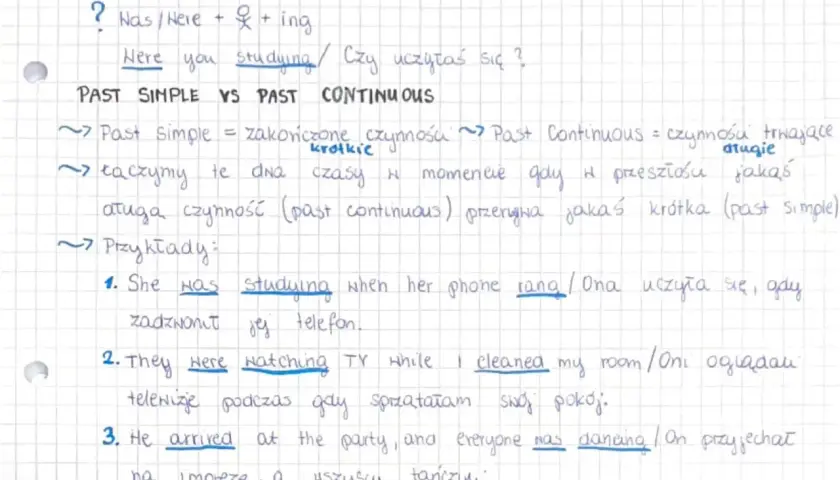 ? Was/Were + + ing
Were you studying / Czy uczyłaś się ?
PAST SIMPLE VS PAST CONTINUOUS
~> Past Simple = zakończone czynności ~> Past Continuous = czynności trwające
krótkie długie
~> Łączymy te dwa czasy w momencie gdy w przeszłości jakąś
długą czynność (past continuous) przerywa jakaś krótka (past simple)
~> Przykłady:
1. She was studying when her phone rang / Ona uczyła się, gdy
zadzwonił jej telefon.
2. They were watching TV while I cleaned my room / Oni oglądali
telewizję podczas gdy sprzątałam swój pokój.
3. He arrived at the party, and everyone was dancing / On przyjechał
na imprezę a wszyscy tańczyli.